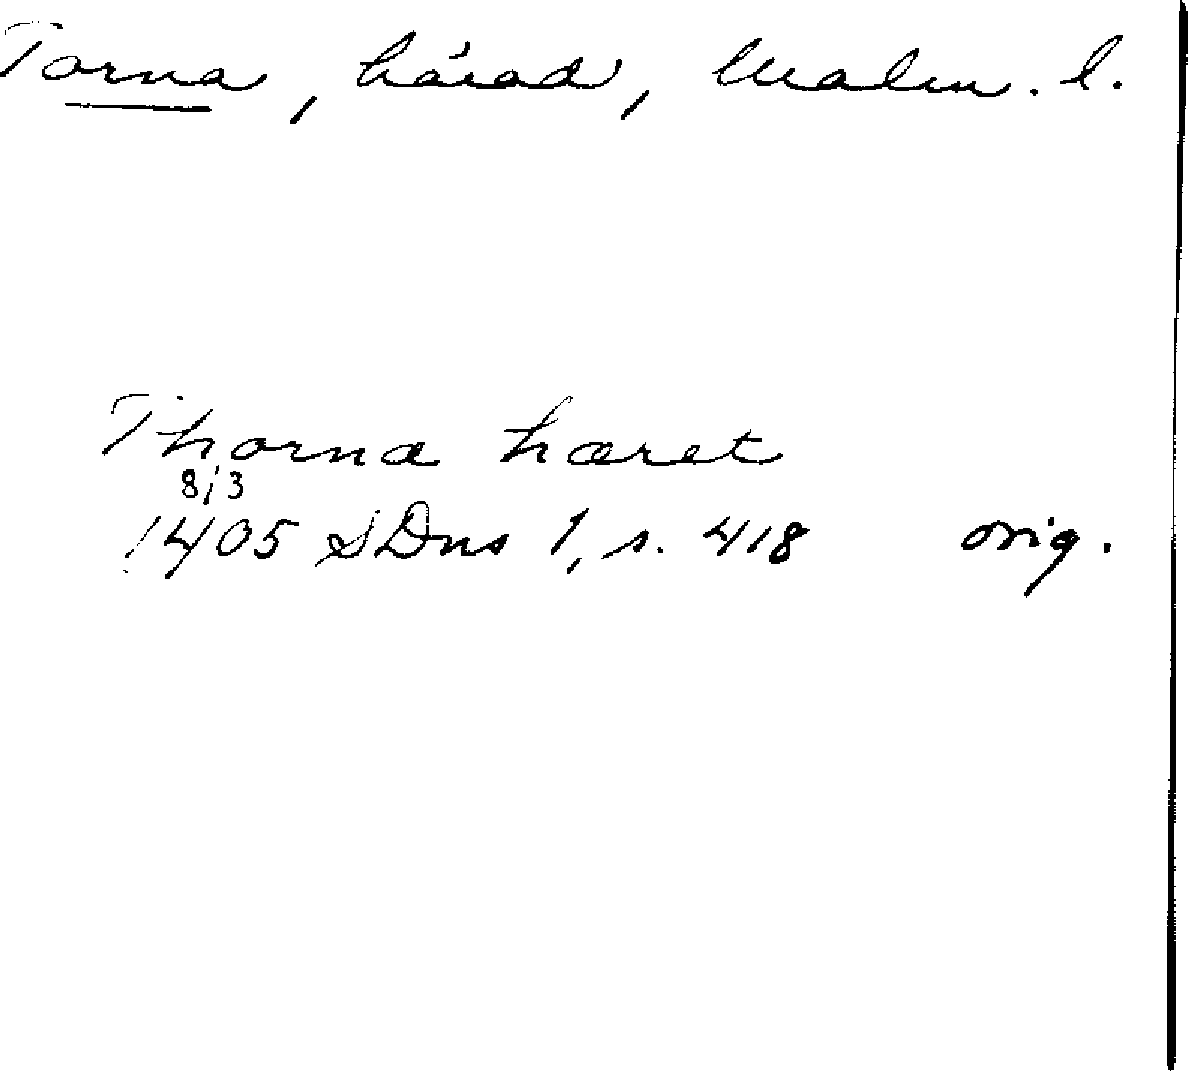 Torna, härad, Malm. l.
Thorna hæret
8/3
1405 SDns 1, s. 418 orig.